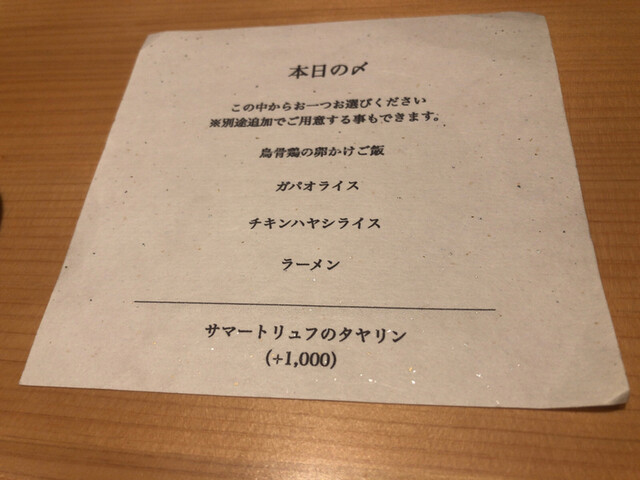 本日の〆
この中からお一つお選びください
※別途追加でご用意する事もできます。
烏骨鶏の卵かけご飯
ガパオライス
チキンハヤシライス
ラーメン
サマートリュフのタヤリン
(+1,000)